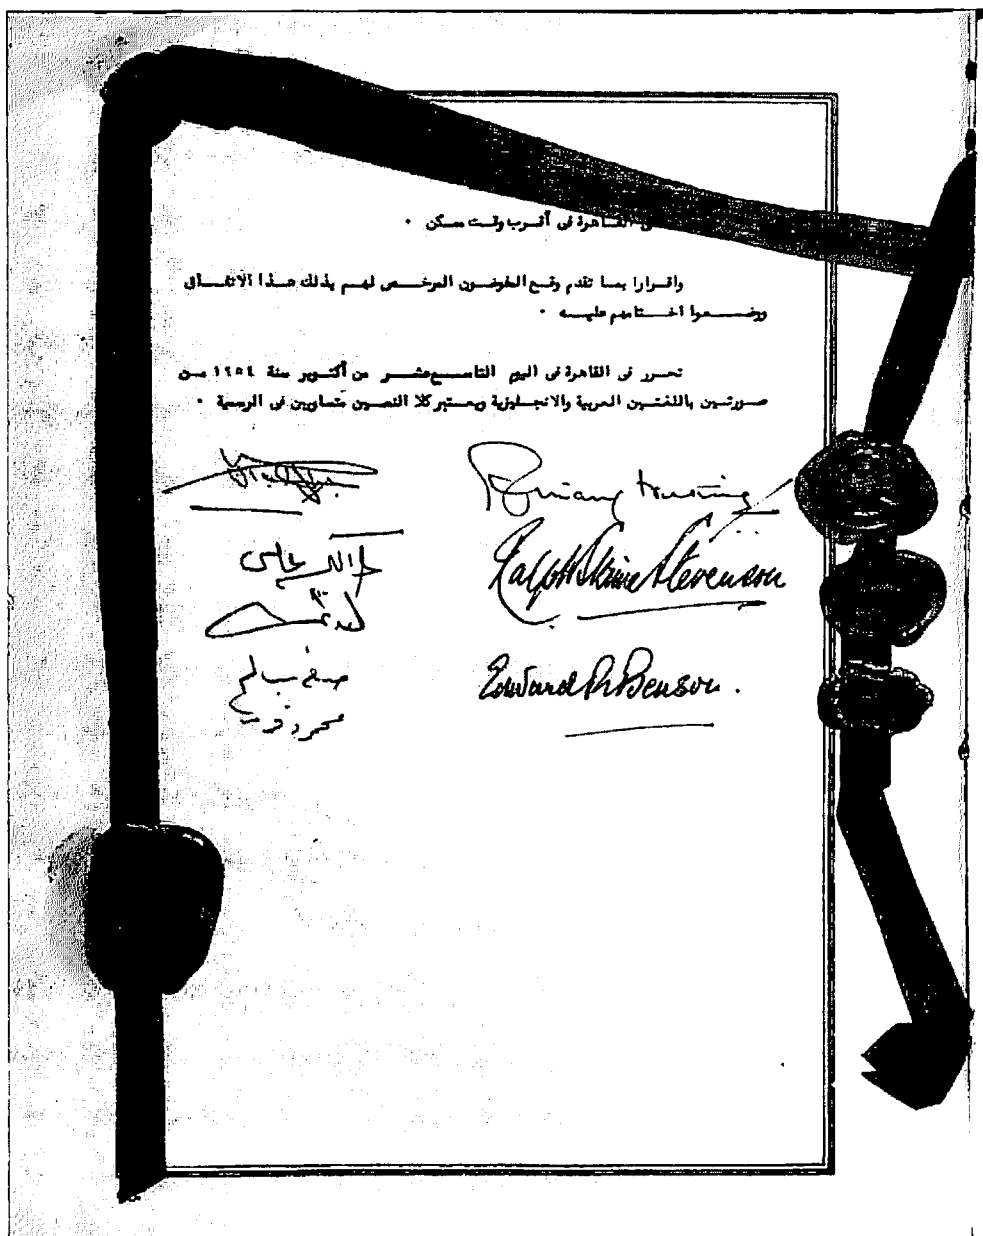 القاهرة فى أقرب وقت ممكن ٠
واقرارا بما تقدم وقع المفوضون المرخص لهم بذلك هذا الاتفاق
ووضعوا أختامهم عليه ٠
تحرر فى القاهرة فى اليوم التاسع عشر من أكتوبر سنة ١٩٥٤ من
صورتين باللغتين العربية والانجليزية ويعتبر كلا النصين متساويين فى الرسمية ٠
Ralph Skrine Stevenson
صلاح سالم
Edward R Benson.
محمود فوزى